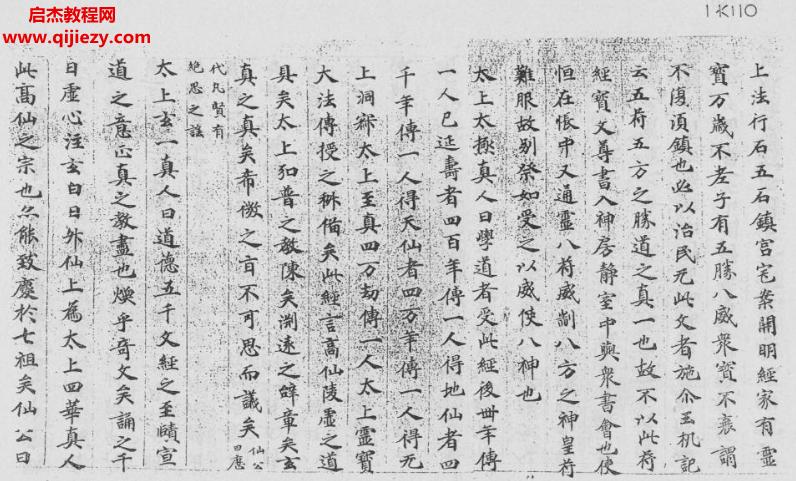 启杰教程网
www.qijiezy.com
1K110
上法行石五石鎮宮宅案開明經家有靈
寶万歲不老子有五勝八威眾寶不衰謂
不復須鎮也必以治民无此文者施尒玉机記
云五符五方之勝道之真一也故不以此符
經寶文尊書入神房静室中與眾書會也使
恒在帳中又通靈八符威制八方之神皇符
難服故别祭如受之以威使八神也
太上太極真人曰學道者受此經後卌年傳
一人已延壽者四百年傳一人得地仙者四
千年傳一人得天仙者四万年傳一人得无
上洞寂太上至真四万劫傳一人太上靈寶
大法傳授之科備矣此經言高仙陵虚之道
具矣太上弘普之教陳矣渊遠之辞章矣玄
真之真矣希微之旨不可思而議矣 仙公曰應
代凡賢有絶思之謡
太上玄一真人曰道德五千文經之至賾宣
道之意正真之教盡也煥乎奇文矣誦之千
日虚心注玄白日升仙上為太上四華真人
此高仙之宗也亦能致慶於七祖矣仙公曰